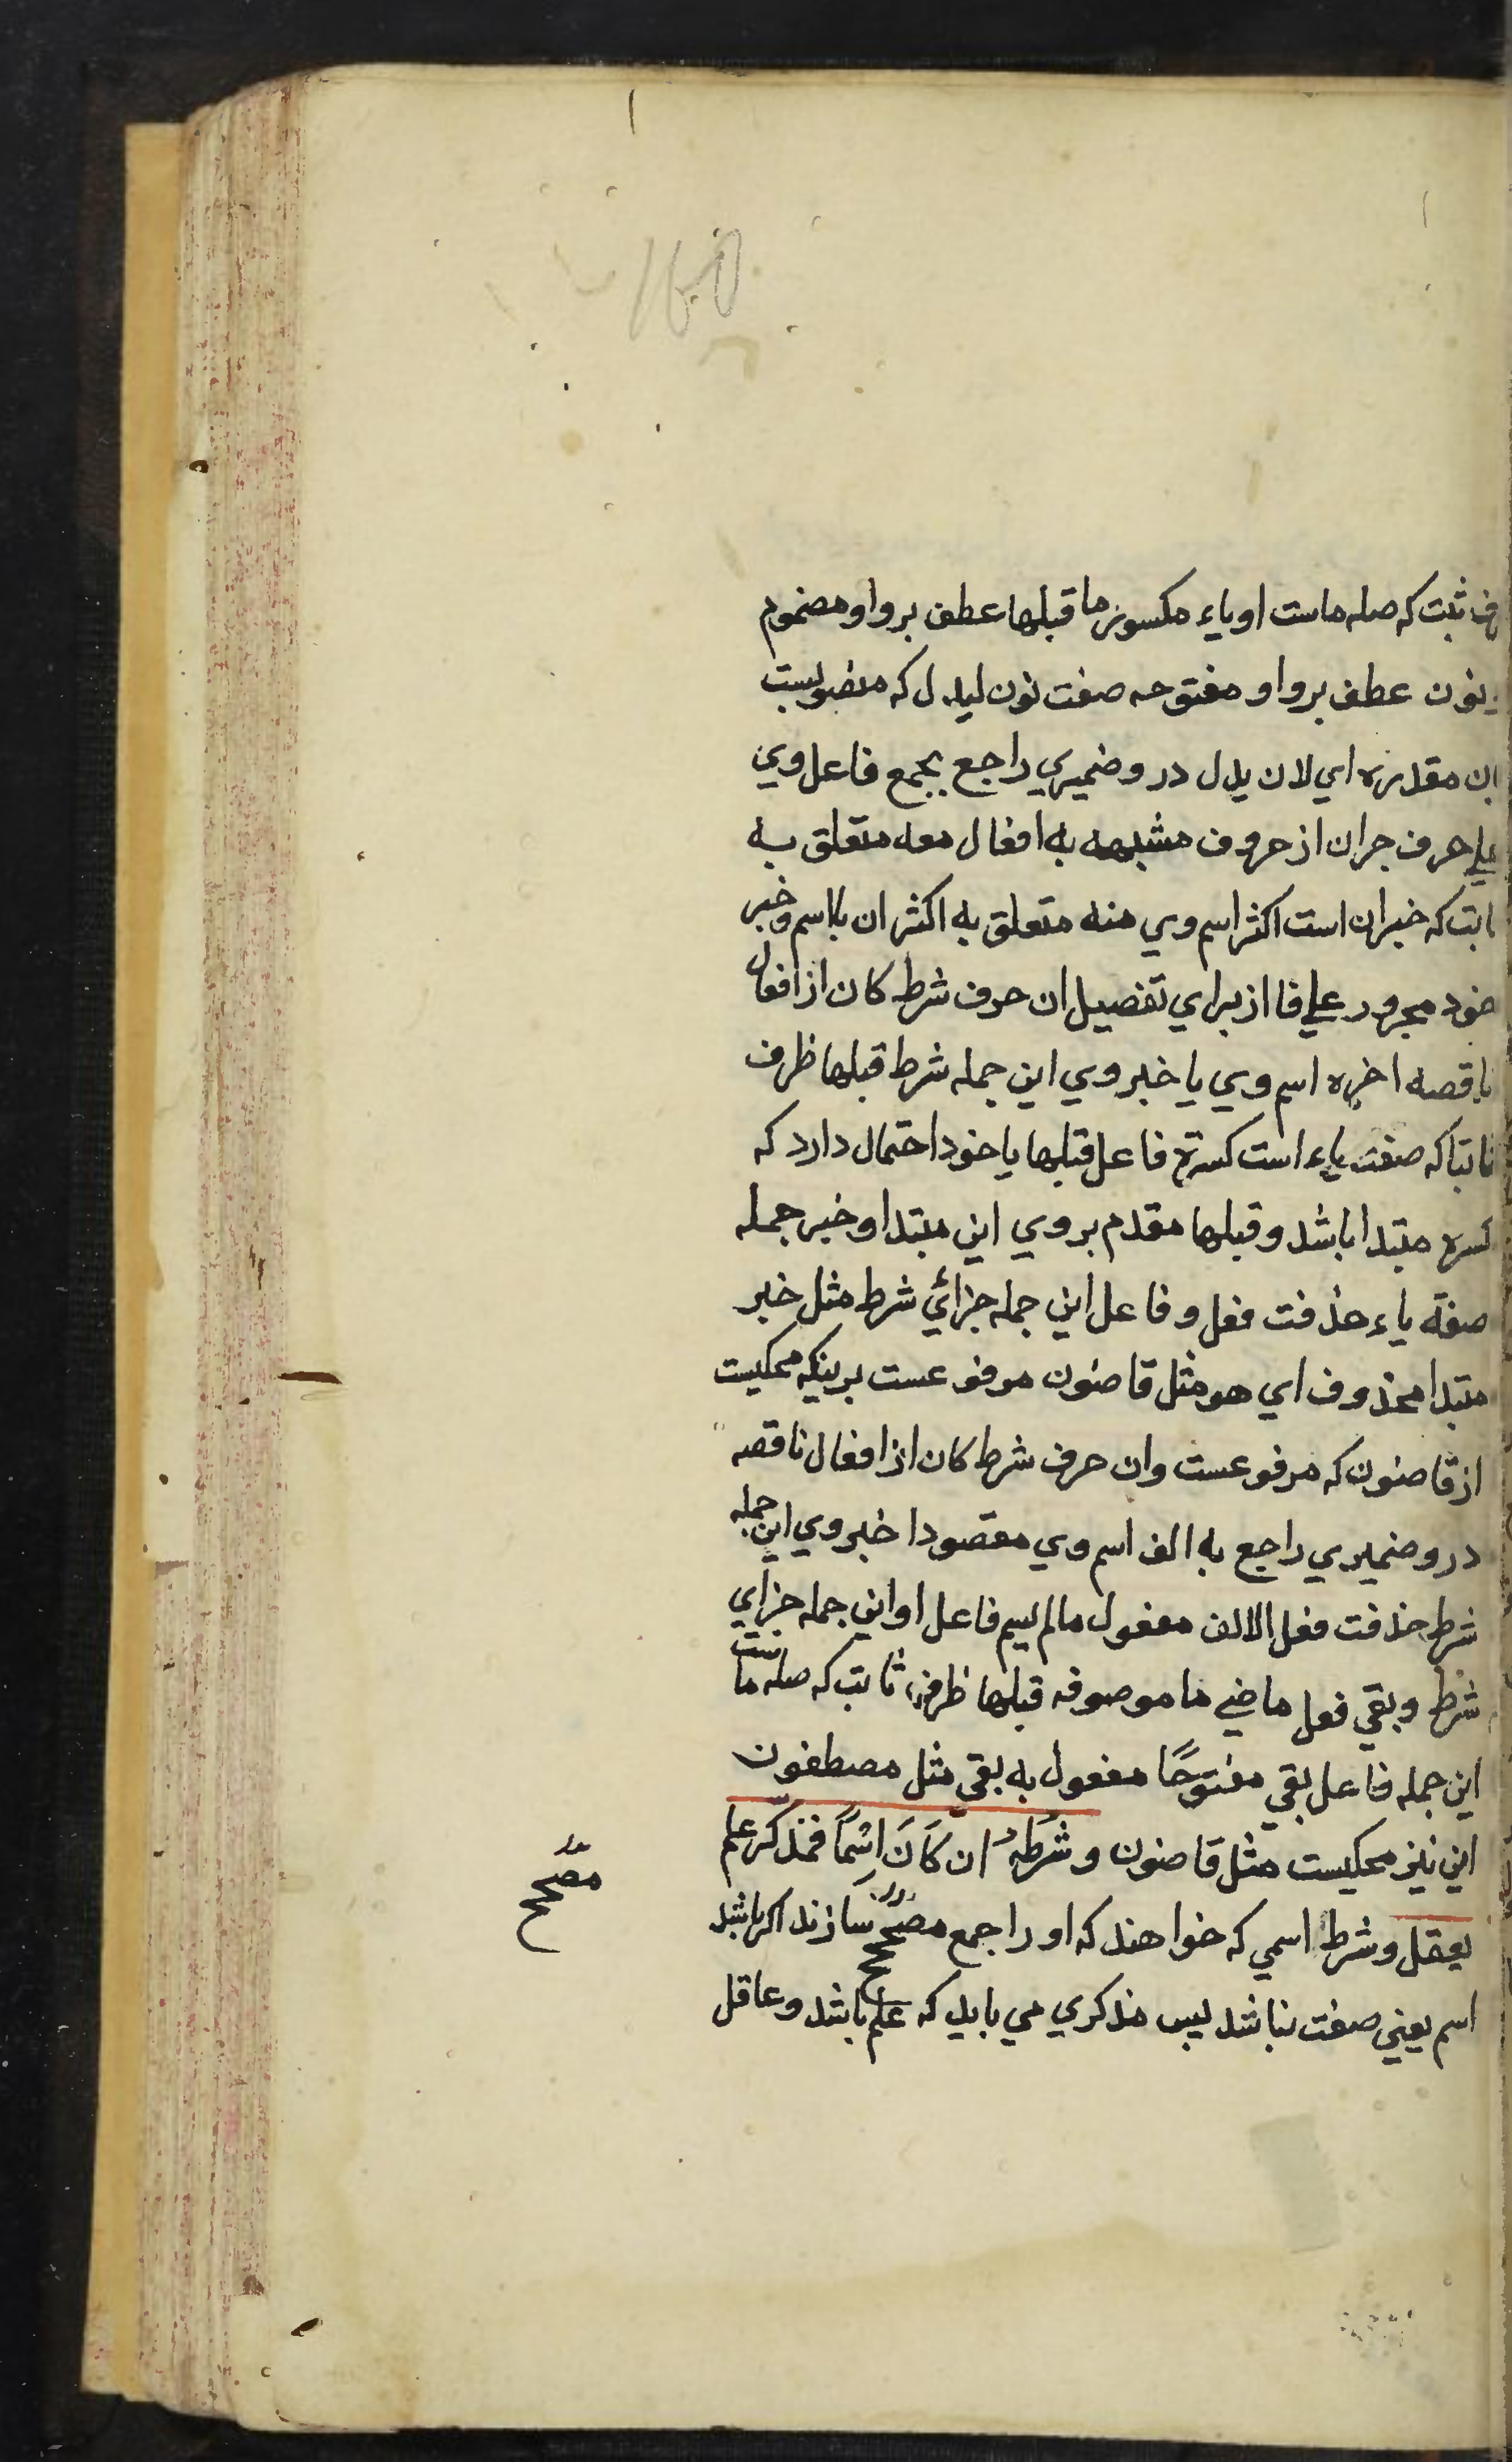 ثبت که صله ماست او یاء مکسور ما قبلها عطف بر واو مضموم
نون عطف بر واو مفتوحه صفت نون لیدل که منصوبست
بان مقدره ای لان یدل در و ضمیری راجع بجمع فاعل وی
علی حرف جر ان از حروف مشبهه به افعال معه متعلق به
ثابت که خبر ان است اکثر اسم وی منه متعلق به اکثر ان بااسم و خبر
خود مجرور علی فا از برای تفصیل ان حرف شرط کان از افعال
ناقصه اخره اسم وی یا خبر وی این جمله شرط قبلها ظرف
ثابتا که صفت یاء است کسرة فاعل قبلها یا خود احتمال دارد که
کسره مبتدا باشد و قبلها مقدم بر وی این مبتدا و خبر جمله
صفة یاء حذفت فعل و فاعل این جمله جزائی شرط مثل خبر
مبتدا محذوف ای هو مثل قاضون مرفوعست برینکه محکیست
از قاضون که مرفوعست وان حرف شرط کان از افعال ناقصه
در و ضمیری راجع به الف اسم وی مقصودا خبر وی این جمله
شرط حذفت فعل الالف مفعول مالم یسم فاعل او این جمله جزای
شرط و بقی فعل ماضی ما موصوفه قبلها ظرف ثابت که صله ماست
این جمله فاعل بقی مفتوحًا مفعول به بقی مثل مصطفون
این نیز محکیست مثل قاضون و شرطه ان کَانَ اسْماً فمذکّر علم
یعقل و شرط اسمی که خواهند که او را جمع مصحح سازند اکر باشد
اسم یعنی صفت نباشد پس مذکری می باید که علم باشد و عاقل
مصحح